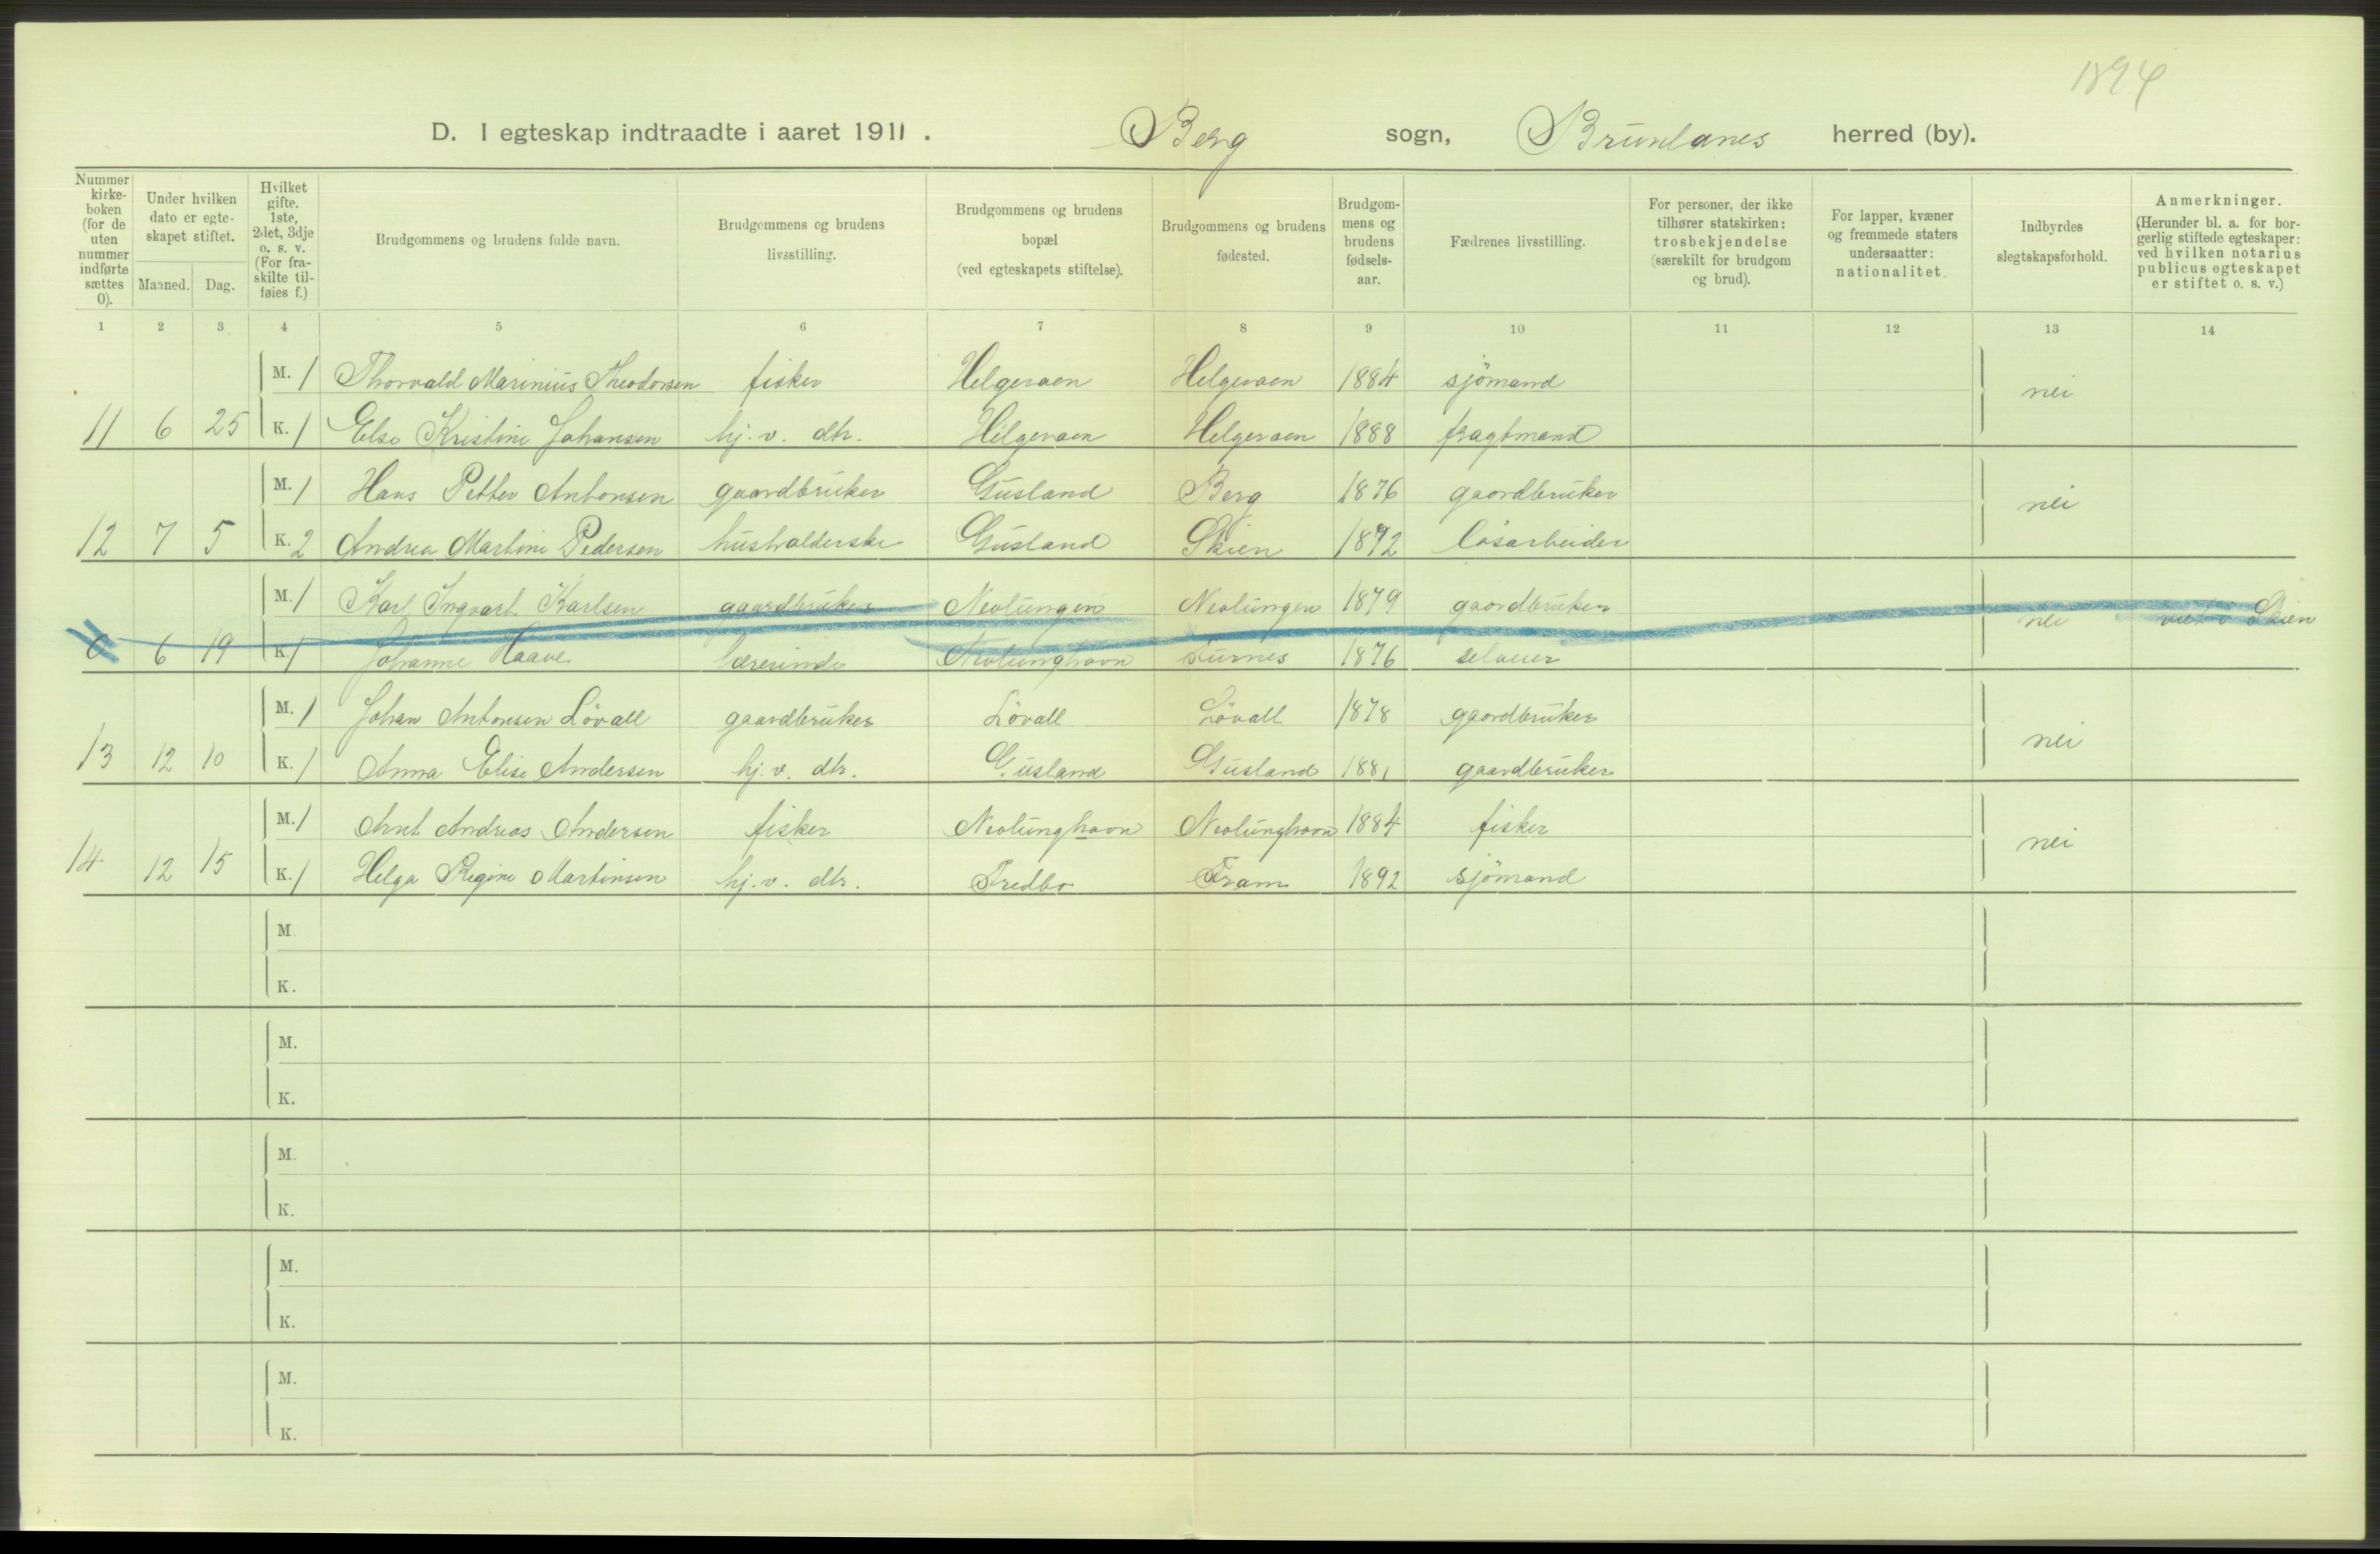 1894
D. I egteskap indtraadte i aaret 1911. Berg sogn, Brunlanes herred (by).
Nummer kirke-boken (for de uten nummer indførte sættes 0). | Under hvilken dato er egte-skapet stiftet. Maaned. Dag. | Hvilket gifte. 1ste, 2det, 3dje o. s. v. (For fra-skilte til-føies f.) | Brudgommens og brudens fulde navn. | Brudgommens og brudens livsstilling. | Brudgommens og brudens bopæl (ved egteskapets stiftelse). | Brudgommens og brudens fødested. | Brudgom-mens og brudens fødsels-aar. | Fædrenes livsstilling. | For personer, der ikke tilhører statskirken: trosbekjendelse (særskilt for brudgom og brud). | For lapper, kvæner og fremmede staters undersaatter: nationalitet. | Indbyrdes slegtskapsforhold. | Anmerkninger. (Herunder bl. a. for bor-gerlig stiftede egteskaper: ved hvilken notarius publicus egteskapet er stiftet o. s. v.)
1 2 3 4 5 6 7 8 9 10 11 12 13 14
M. 1 Thorvald Marinius Theodorsen fisker Helgeroaen Helgeroaen 1884 sjömand nei
11 6 25 K. 1 Else Kristine Johansen hj. v. dtr. Helgeroaen Helgeroaen 1888 fragtmand
M. 1 Hans Petter Antonsen gaardbruker Gusland Berg 1876 gaardbruker nei
12 7 5 K. 2 Andrea Martine Pedersen husholderske Gusland Skien 1872 løsarbeider
M. 1 Karl Ingvart Karlsen gaardbruker Nevlungen Nevlungen 1879 gaardbruker nei viet i Skien
0 6 19 K. 1 Johanne Haave lærerinde Nevlunghavn Furnes 1876 seloeier
M. 1 Johan Antonsen Lövall gaardbruker Lövall Lövall 1878 gaardbruker nei
13 12 10 K. 1 Anna Elise Andersen hj. v. dtr. Gusland Gusland 1881 gaardbruker
M. 1 Arnt Andreas Andersen fisker Nevlunghavn Nevlunghavn 1884 fisker nei
14 12 15 K. 1 Helga Regine Martinsen hj. v. dtr. Fredbo Fram 1892 sjömand
M.
K.
M.
K.
M.
K.
M.
K.
M.
K.